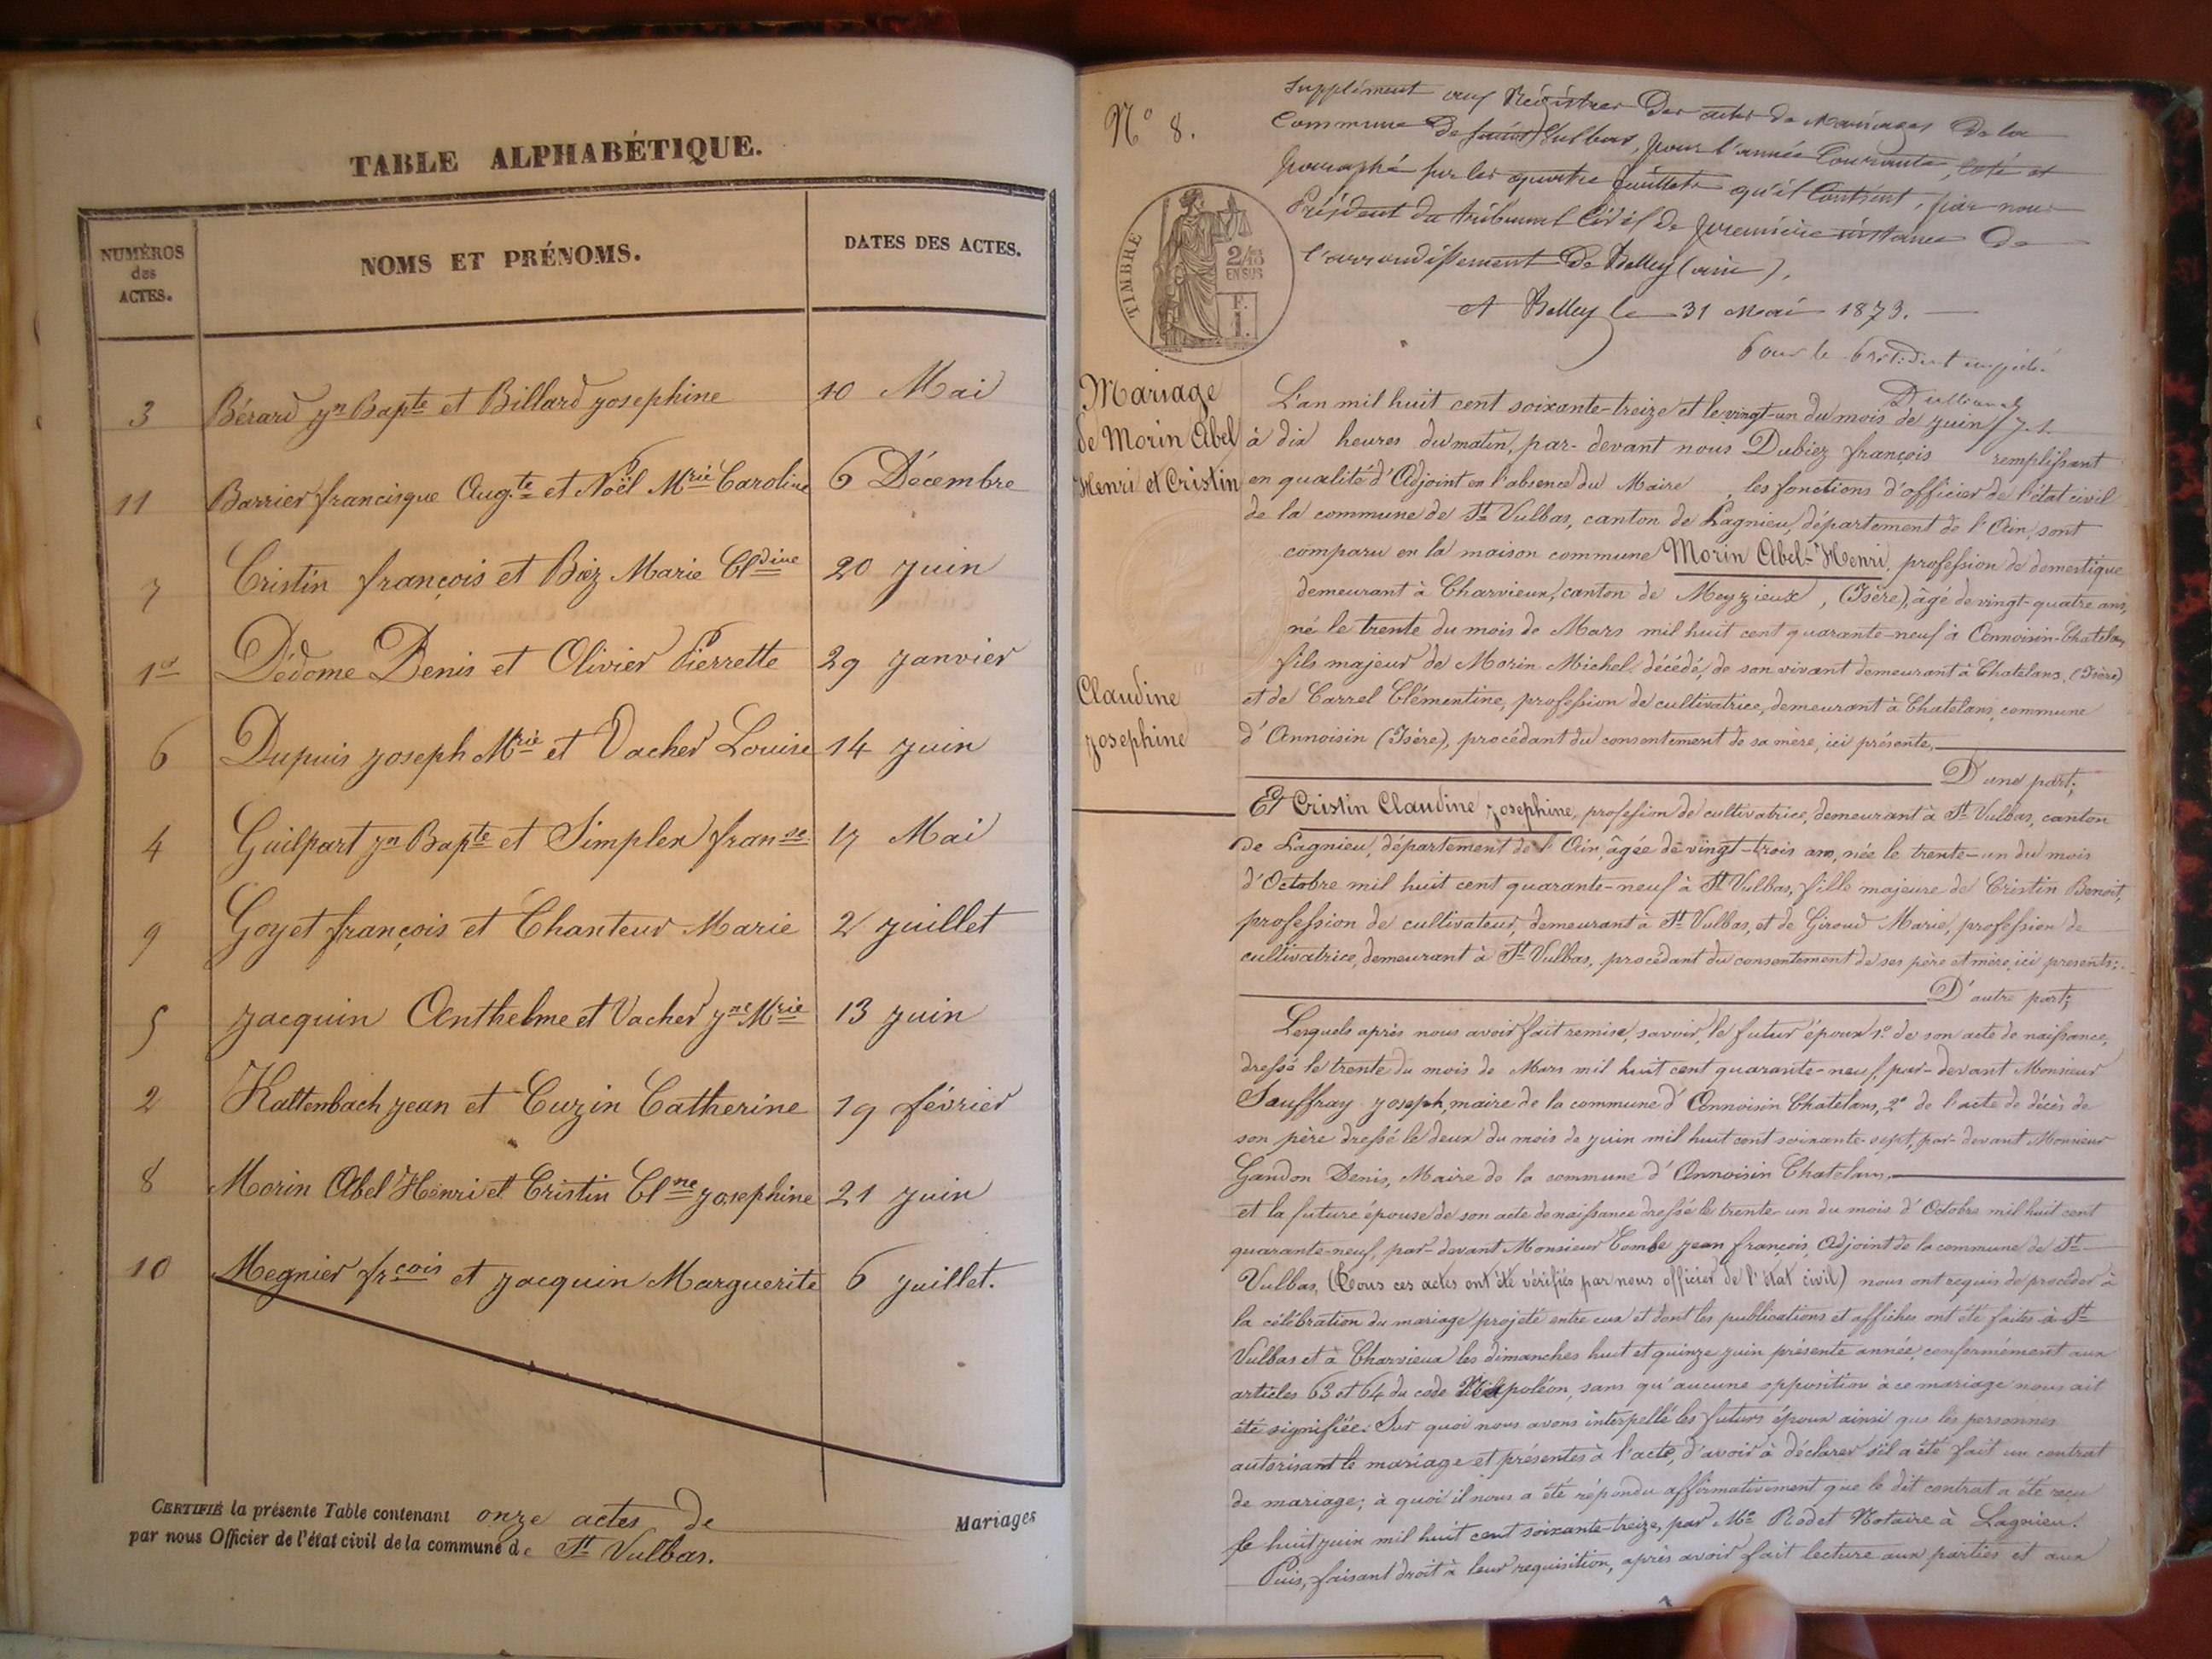 TABLE ALPHABÉTIQUE.
NUMÉROS des ACTES.
NOMS ET PRÉNOMS.
DATES DES ACTES.
3 Bérard Jn Bapte et Billard Josephine 10 Mai
11 Barrier francisque Aug.te et Noël Mrie Caroline 6 Décembre
7 Cristin françois et Biez Marie Cldine 20 Juin
1er Dédome Denis et Olivier Pierrette 29 Janvier
6 Dupuis Joseph Mrie et Vacher Louise 14 Juin
4 Guilpart Jn Bapte et Simplex franse 17 Mai
9 Goyet françois et Chanteur Marie 2 Juillet
5 Jacquin Anthelme et Vacher Jne Mrie 13 Juin
2 Kaltenbach Jean et Cuzin Catherine 19 février
8 Morin Abel Henri et Cristin Clne Josephine 21 Juin
10 Megnier frçois et Jacquin Marguerite 6 Juillet.
CERTIFIÉ la présente Table contenant onze actes de Mariages
par nous Officier de l'état civil de la commune de St Vulbas.
N° 8.
Supplément aux Régistres des actes de Mariages de la
Commune de Saint Vulbas, pour l'année Courante, coté et
paraphé sur les quatre feuillets qu'il Contient, par nous
Président du tribunal Civil de première instance de
l'arrondissement de Belley (ain).
A Belley le 31 Mai 1873.
Pour le Président empêché.
TIMBRE
2/10 EN SUS
F. 1.
Mariage
de Morin Abel
Henri et Cristin
Claudine
Josephine
L'an mil huit cent soixante-treize et le vingt-un du mois de Juin
à dix heures du matin, par-devant nous Dubiez françois remplissant
en qualité d'Adjoint en l'absence du Maire, les fonctions d'officier de l'état civil
de la commune de St Vulbas, canton de Lagnieu, département de l'Ain, sont
comparu en la maison commune Morin Abel-Henri, profession de domestique
demeurant à Charvieux, canton de Meyzieux, (Isère), âgé de vingt-quatre ans,
né le trente du mois de Mars mil huit cent quarante-neuf à Annoisin-Chatelans,
fils majeur de Morin Michel décédé, de son vivant demeurant à Chatelans, (Isère)
et de Carrel Clémentine, profession de cultivatrice, demeurant à Chatelans, commune
d'Annoisin (Isère), procédant du consentement de sa mère, ici présente,
D'une part;
Et Cristin Claudine Josephine, profession de cultivatrice, demeurant à St Vulbas, canton
de Lagnieu, département de l'Ain, âgée de vingt-trois ans, née le trente-un du mois
d'Octobre mil huit cent quarante-neuf à St Vulbas, fille majeure de Cristin Benoit,
profession de cultivateur, demeurant à St Vulbas, et de Giroud Marie, profession de
cultivatrice, demeurant à St Vulbas, procédant du consentement de ses père et mère, ici presents;
D'autre part;
Lesquels après nous avoir fait remise, savoir, le futur époux 1° de son acte de naissance,
dressé le trente du mois de Mars mil huit cent quarante-neuf, par-devant Monsieur
Sauffray Joseph, maire de la commune d'Annoisin Chatelans, 2° de l'acte de décès de
son père dressé le deux du mois de Juin mil huit cent soixante-sept, par-devant Monsieur
Gandon Denis, Maire de la commune d'Annoisin Chatelans,
et la future épouse de son acte de naissance dressé le trente-un du mois d'Octobre mil huit cent
quarante-neuf, par-devant Monsieur Combe Jean françois, Adjoint de la commune de St
Vulbas, (Tous ces actes ont été vérifiés par nous officier de l'état civil) nous ont requis de procéder à
la célébration du mariage projeté entre eux et dont les publications et affiches ont été faites à St
Vulbas et à Charvieux les dimanches huit et quinze Juin présente année, conformément aux
articles 63 et 64 du code Napoléon, sans qu'aucune opposition à ce mariage nous ait
été signifiée. Sur quoi nous avons interpellé les futurs époux ainsi que les personnes
autorisant le mariage et présentes à l'acte, d'avoir à déclarer s'il a été fait un contrat
de mariage; à quoi il nous a été répondu affirmativement que le dit contrat a été reçu
le huit Juin mil huit cent soixante-treize, par Me Rodet Notaire à Lagnieu.
Puis, faisant droit à leur requisition, après avoir fait lecture aux parties et aux